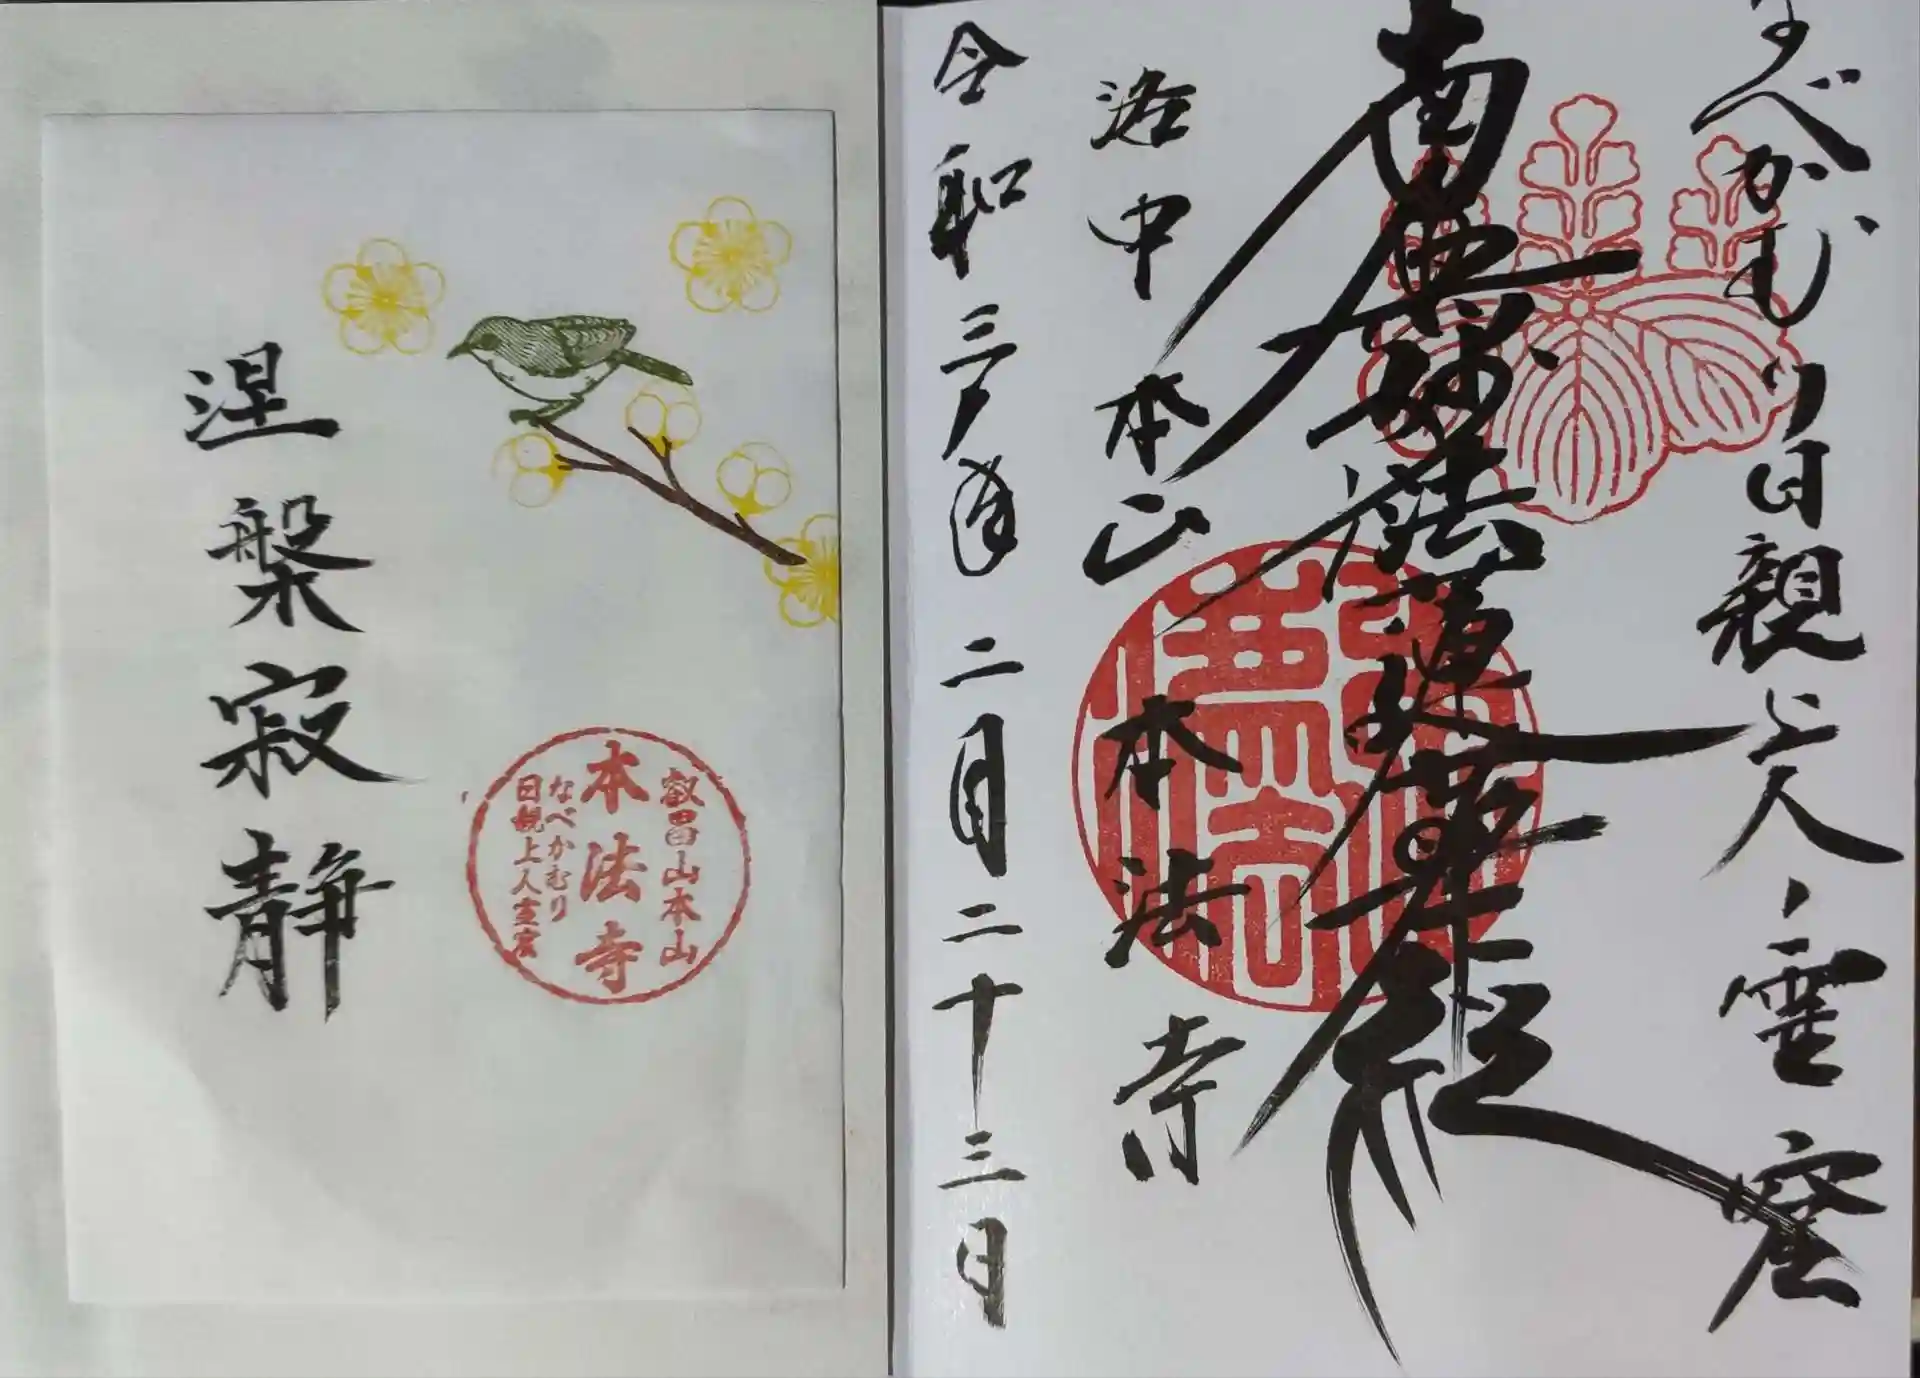 なべかむり日親上人ノ霊窟
南無妙法蓮華経
洛中本山 本法寺
令和三年二月二十三日
叡昌山本山
本法寺
なべかむり
日親上人霊窟
涅槃寂静